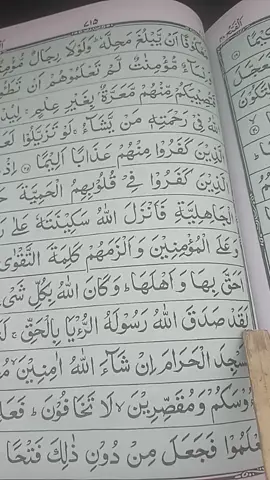 ٧١٥
مَعْكُوْفًا اَنْ يَّبْلُغَ مَحِلَّهٗ ؕ وَلَوْلَا رِجَالٌ مُّؤْمِنُ
وَنِسَآءٌ مُّؤْمِنٰتٌ لَّمْ تَعْلَمُوْهُمْ اَنْ تَطَـُٔ
فَتُصِيْبَكُمْ مِّنْهُمْ مَّعَرَّةٌۢ بِغَيْرِ عِلْمٍ ۚ لِيُدْ
اللّٰهُ فِيْ رَحْمَتِهٖ مَنْ يَّشَآءُ ۚ لَوْ تَزَيَّلُوْا لَعَذَّ
الَّذِيْنَ كَفَرُوْا مِنْهُمْ عَذَابًا اَلِيْمًا ﴿٢٥﴾ اِذْ
الَّذِيْنَ كَفَرُوْا فِيْ قُلُوْبِهِمُ الْحَمِيَّةَ حَ
الْجَاهِلِيَّةِ فَاَنْزَلَ اللّٰهُ سَكِيْنَتَهٗ عَلٰى رَ
وَعَلَى الْمُؤْمِنِيْنَ وَاَلْزَمَهُمْ كَلِمَةَ التَّقْوٰى
اَحَقَّ بِهَا وَاَهْلَهَا ؕ وَكَانَ اللّٰهُ بِكُلِّ شَيْ
لَقَدْ صَدَقَ اللّٰهُ رَسُوْلَهُ الرُّءْيَا بِالْحَقِّ ۚ لَ
سْجِدَ الْحَرَامَ اِنْ شَآءَ اللّٰهُ اٰمِنِيْنَ ۙ مُ
ءُوْسَكُمْ وَمُقَصِّرِيْنَ ۙ لَا تَخَافُوْنَ ؕ فَعَلِ
عْلَمُوْا فَجَعَلَ مِنْ دُوْنِ ذٰلِكَ فَتْحًا